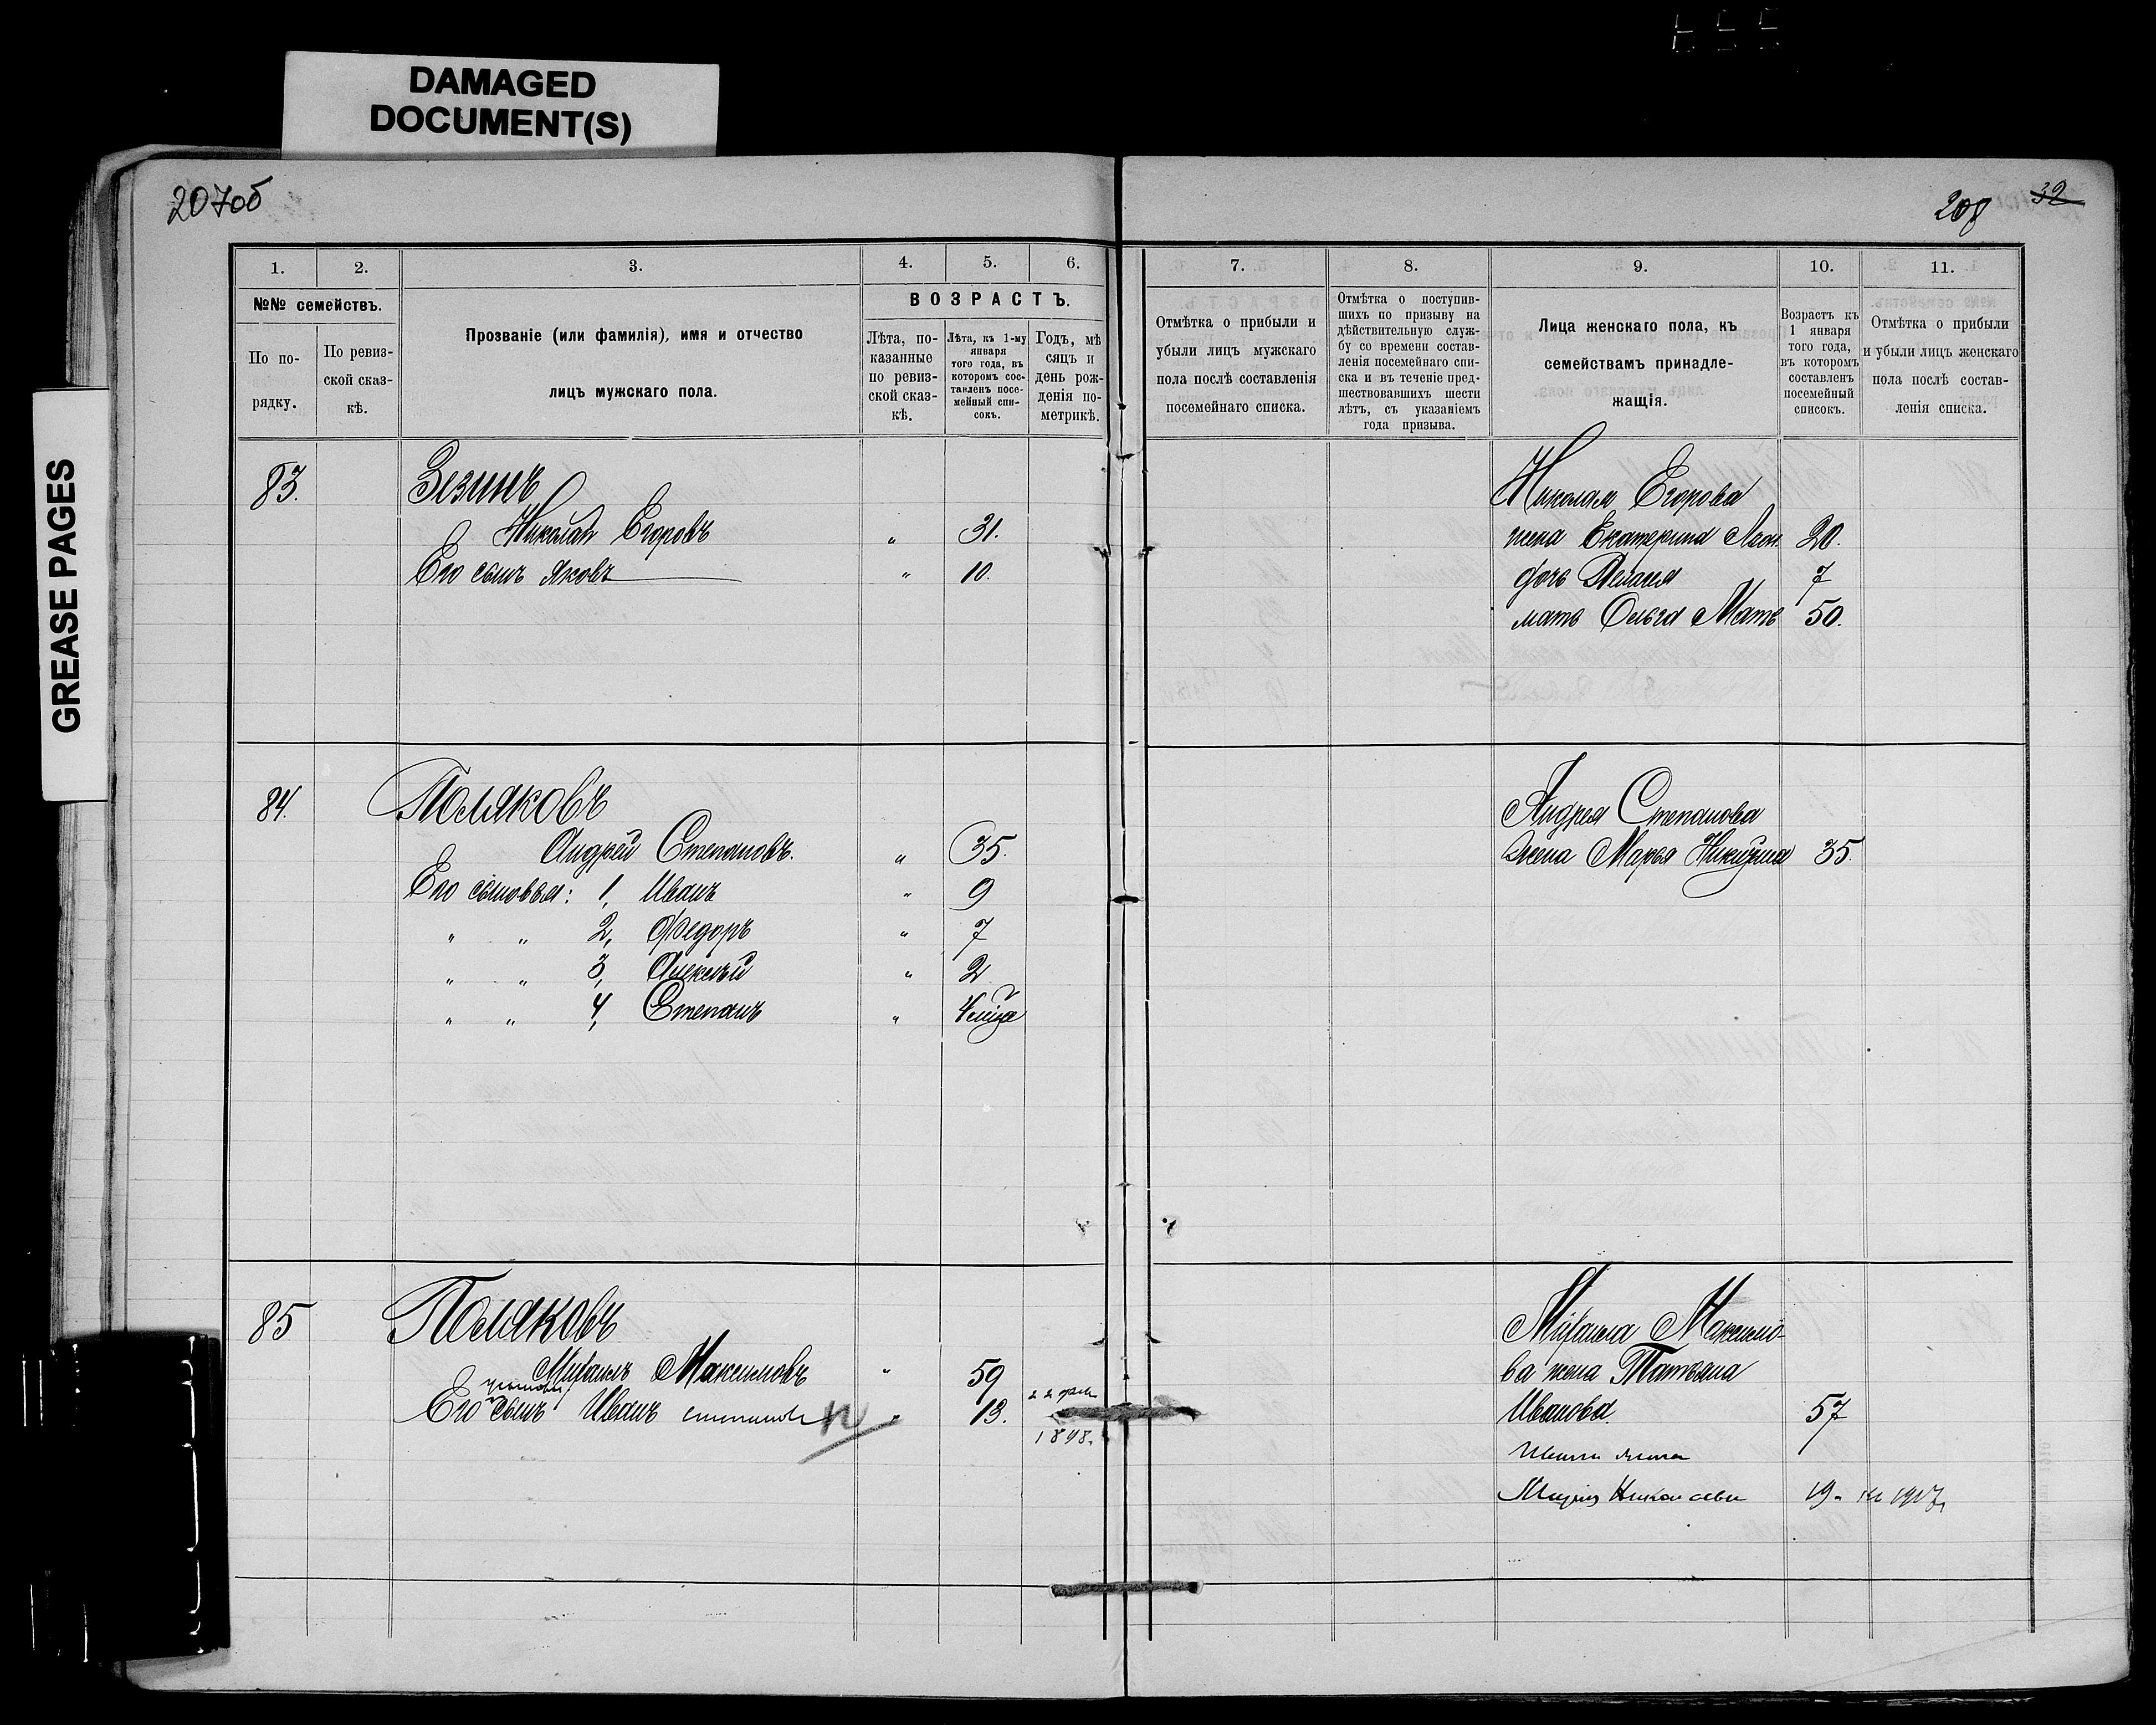 DAMAGED
DOCUMENT(S)
GREASE PAGES
207об
208 32
1. 2. 3. 4. 5. 6.
№№ семействъ.
По по-
рядку.
По ревиз-
ской сказ-
кѣ.
Прозваніе (или фамилія), имя и отчество
лицъ мужскаго пола.
ВОЗРАСТЪ.
Лѣта, по-
казанные
по ревиз-
ской сказ-
кѣ.
Лѣта, къ 1-му
января
того года, въ
которомъ сос-
тавленъ посе-
мейный спи-
сокъ.
Годъ, мѣ
сяцъ и
день рож-
денія по-
метрикѣ.
7. 8. 9. 10. 11.
Отмѣтка о прибыли и
убыли лицъ мужскаго
пола послѣ составленія
посемейнаго списка.
Отмѣтка о поступив-
шихъ по призыву на
дѣйствительную служ-
бу со времени состав-
ленія посемейнаго спи-
ска и въ теченіе пред-
шествовавшихъ шести
лѣтъ, съ указаніемъ
года призыва.
Лица женскаго пола, къ
семействамъ принадле-
жащія.
Возрастъ къ
1 января
того года,
въ которомъ
составленъ
посемейный
списокъ.
Отмѣтка о прибыли
и убыли лицъ женскаго
пола послѣ состав-
ленія списка.
83. Зезинъ
Николай Егоровъ " 31.
Его сынъ Яковъ " 10.
Николая Егорова
жена Екатерина 20.
дочь 7
мать Ольга Матв 50.
84. Поляковъ
Андрей Степановъ. " 35.
Его сыновья: 1, Иванъ " 9
" " 2, Федоръ " 7
" " 3, Алексѣй " 2
" " 4, Степанъ "
Андрея Степанова
жена Марья 35.
85 Поляковъ
Михаилъ Максимовъ " 59
Его сынъ Иванъ " 13.
Михаила Максимо-
ва жена Татьяна
Иванова. 57
Ивана жена
Мария Николаева 19. къ 1917